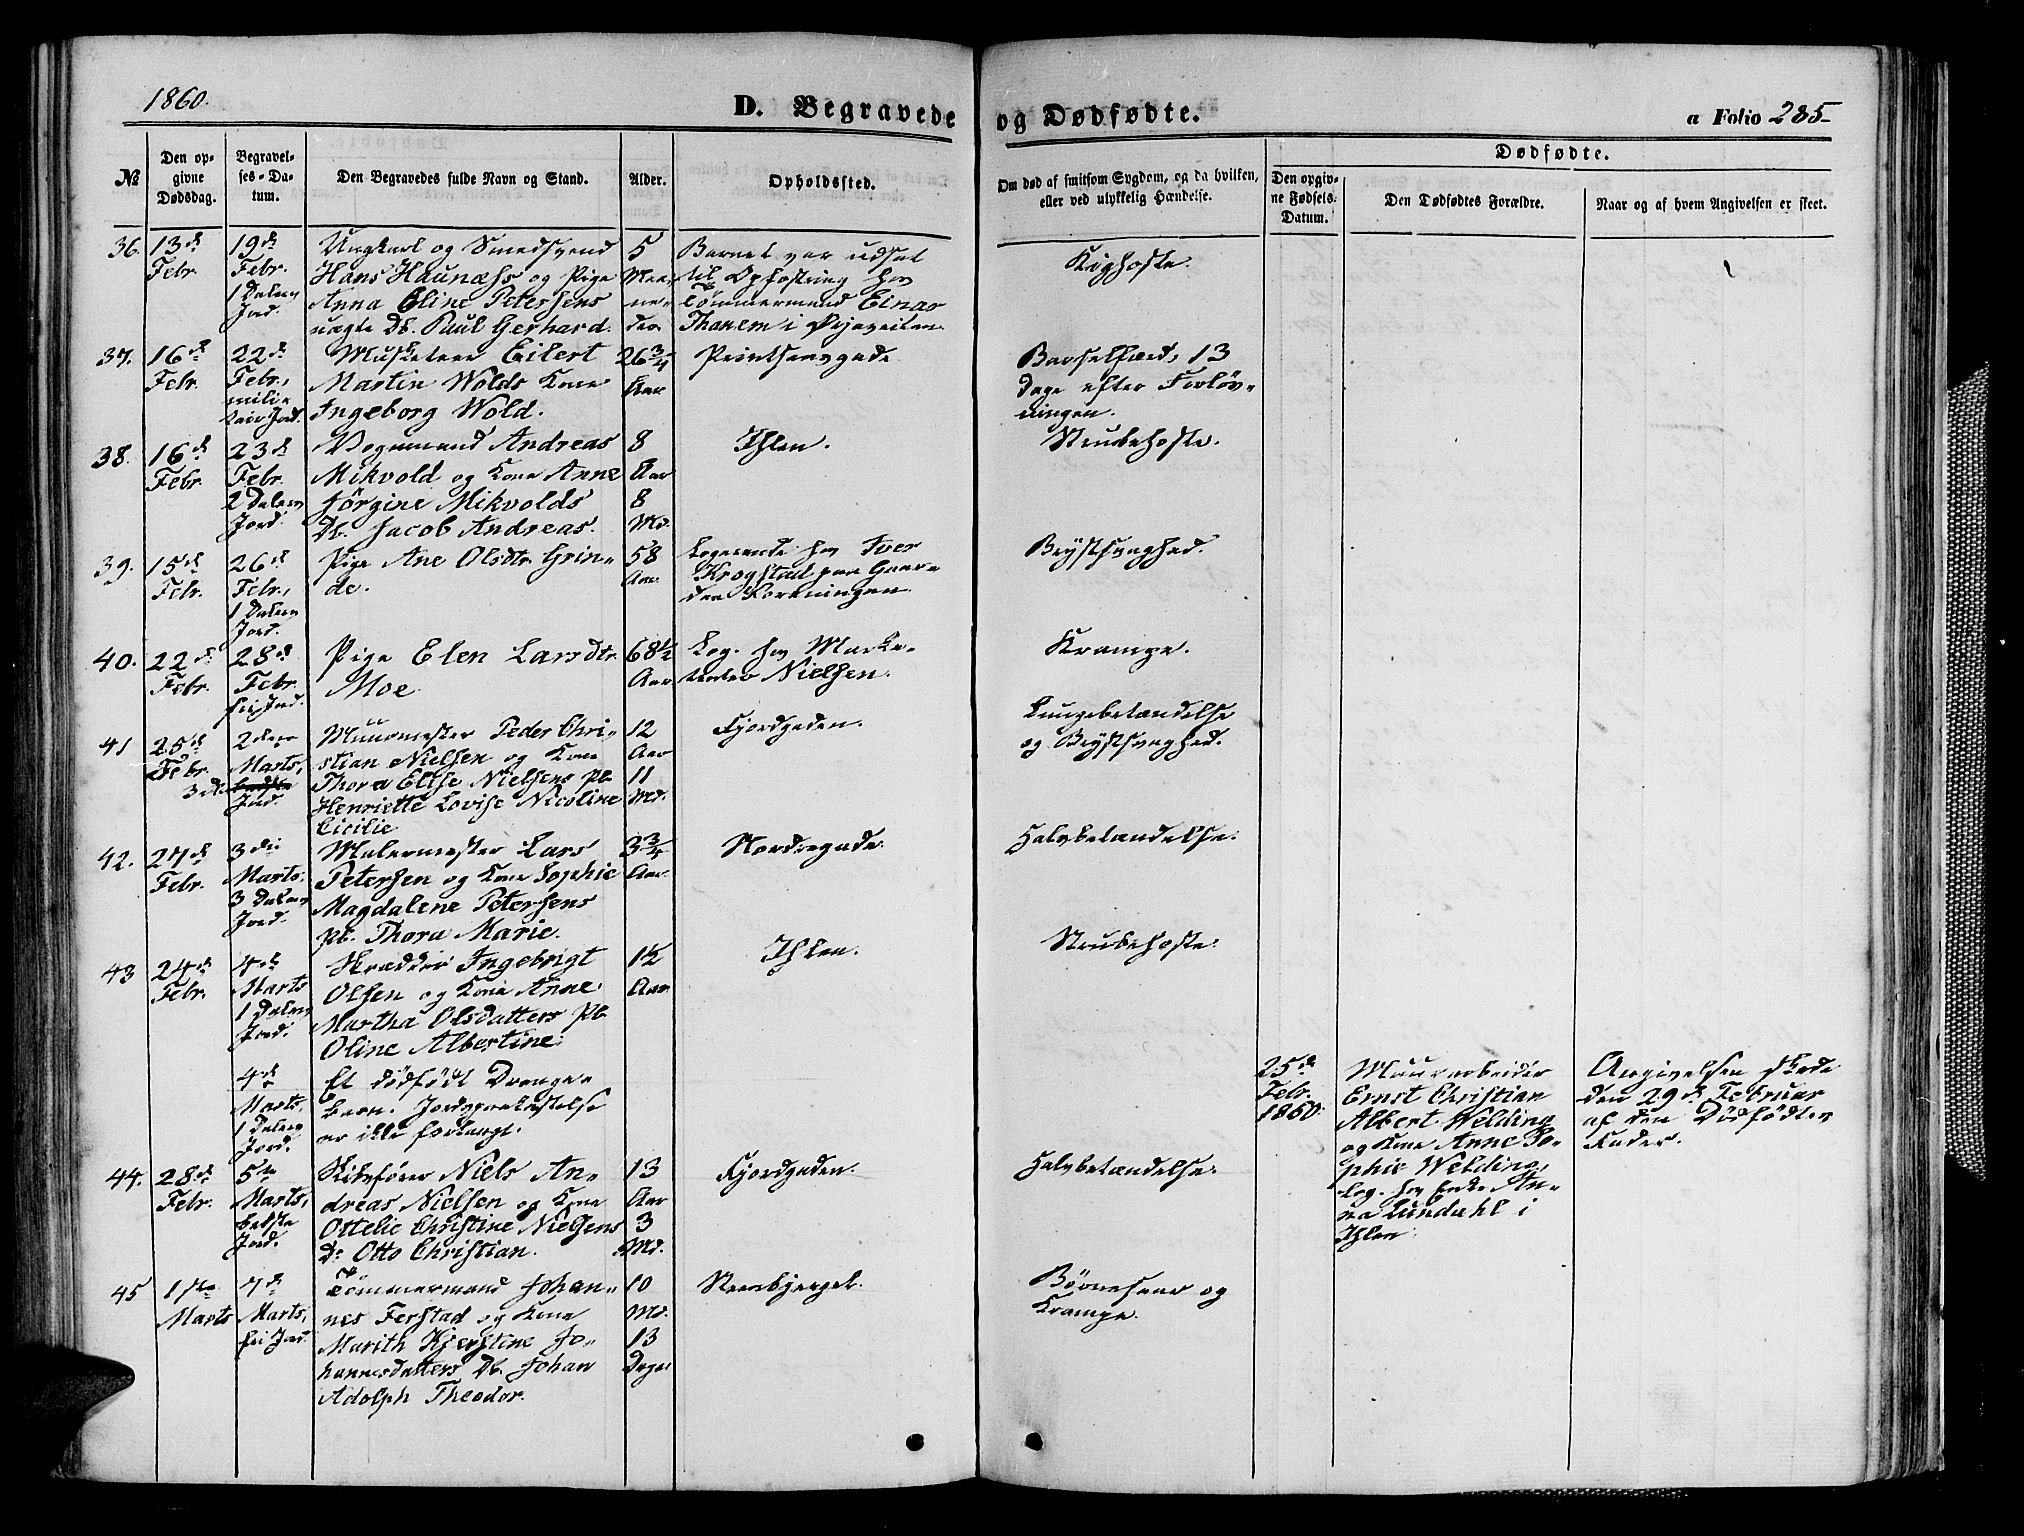 1860.
D. Begravede
og Dødfødte.
a Folio 285
№
Den op-
givne
Dødsdag.
Begravel-
ses-Da-
tum.
Den Begravedes fulde Navn og Stand.
Alder.
Opholdssted.
Om død af smitsom Sygdom, og da hvilken,
eller ved ulykkelig Hændelse.
Dødfødte.
Den opgiv-
ne Fødsels-
Datum.
Den Dødfødtes Forældre.
Naar og af hvem Angivelsen er skeet.
36.
13de
Febr.
19de
Febr.
1 Dalers
Jord.
Ungkarl og Smedsvend
Hans Haunæss og Pige
Anna Eline Petersens
uægte Db. Paul Gerhard.
5
Maa-
ne-
der
Barnet var udsat
til Opfostring hos
Tømmermand Einar
Thanem i Øvjeveiten
Kighoste.
37.
16de
Febr.
22de
Febr.,
mili-
tair Jord.
Musketeer Eilert
Martin Wolds Kone
Ingeborg Wold.
26 3/4
Aar
Printsensgade
Barselfærd, 13
Dage efter Forløs-
ningen.
38.
16de
Febr.
23de
Febr.
2 Dalers
Jord.
Vognmand Andreas
Mikvold og Kone Anne
Jørgine Mikvolds
Db. Jacob Andreas.
8
Aar
8
Md.
Ihlen.
Strubehoste.
39.
15de
Febr.
26de
Febr.,
1 Dalers
Jord.
Pige Ane Olsdtr. Grin-
de.
58
Aar
Logerende hos Iver
Krogstad paa Gaar-
den Forkningen
Brystsvaghed.
40.
22de
Febr.
28de
Febr.
fri Jord.
Pige Elen Larsdtr.
Moe
68 1/2
Aar
Log. hos Marke-
tenter Nielsen.
Krampe.
41
25de
Febr.
2den
Marts,
3 D.
Jord.
Muurmester Peder Chri-
stian Nielsen og Kone
Thora Elise Nielsens Pb.
Henriette Lovise Nicoline
Cicilie
12
Aar
11
Md.
Fjordgaden.
Lungebetændelse
og Brystsvaghed.
42.
27de
Febr.
3die
Marts.
3 Dalers
Jord.
Malermester Lars
Petersen og Kone Sophie
Magdalene Petersens
Pb. Thora Marie.
3 3/4
Aar.
Nordregade.
Halsbetændelse.
43
24de
Febr.
4de
Marts
1 Dalers
Jord.
Skrædder Ingebrigt
Olsen og Kone Anne
Martha Olsdatters Pb.
Oline Albertine.
1 1/2
Aar
Ihlen.
Strubehoste.
4de
Marts,
1 Dalers
Jord.
Et dødfødt Drenge-
barn. Jordpaakastelse
er ikke forlangt.
25de
Febr.
1860.
Muurarbeider
Ernst Christian
Albert Welding
og Kone Anne So-
phie Welding,
log. hos Enke An-
na Lundahl i
Ihlen.
Angivelsen skede
den 29de Februar
af den Dødfødtes
Fader.
44.
28de
Febr.
5te
Marts,
bedste
Jord.
Skibsfører Niels An-
dreas Nielsen og Kone
Ottelie Christine Nielsens
D. Otto Christian.
13
Aar
3
Md.
Fjordgaden.
Halsbetændelse.
45
1ste
Marts
7de
Marts,
fri Jord.
Tømmermand Johan-
nes Ferstad og Kone
Marith Kjerstine Jo-
hannesdatters Db. Johan
Adolph Theodor.
10
Md.
13
Dage
Steenbjerget.
Børnesaar og
Krampe.